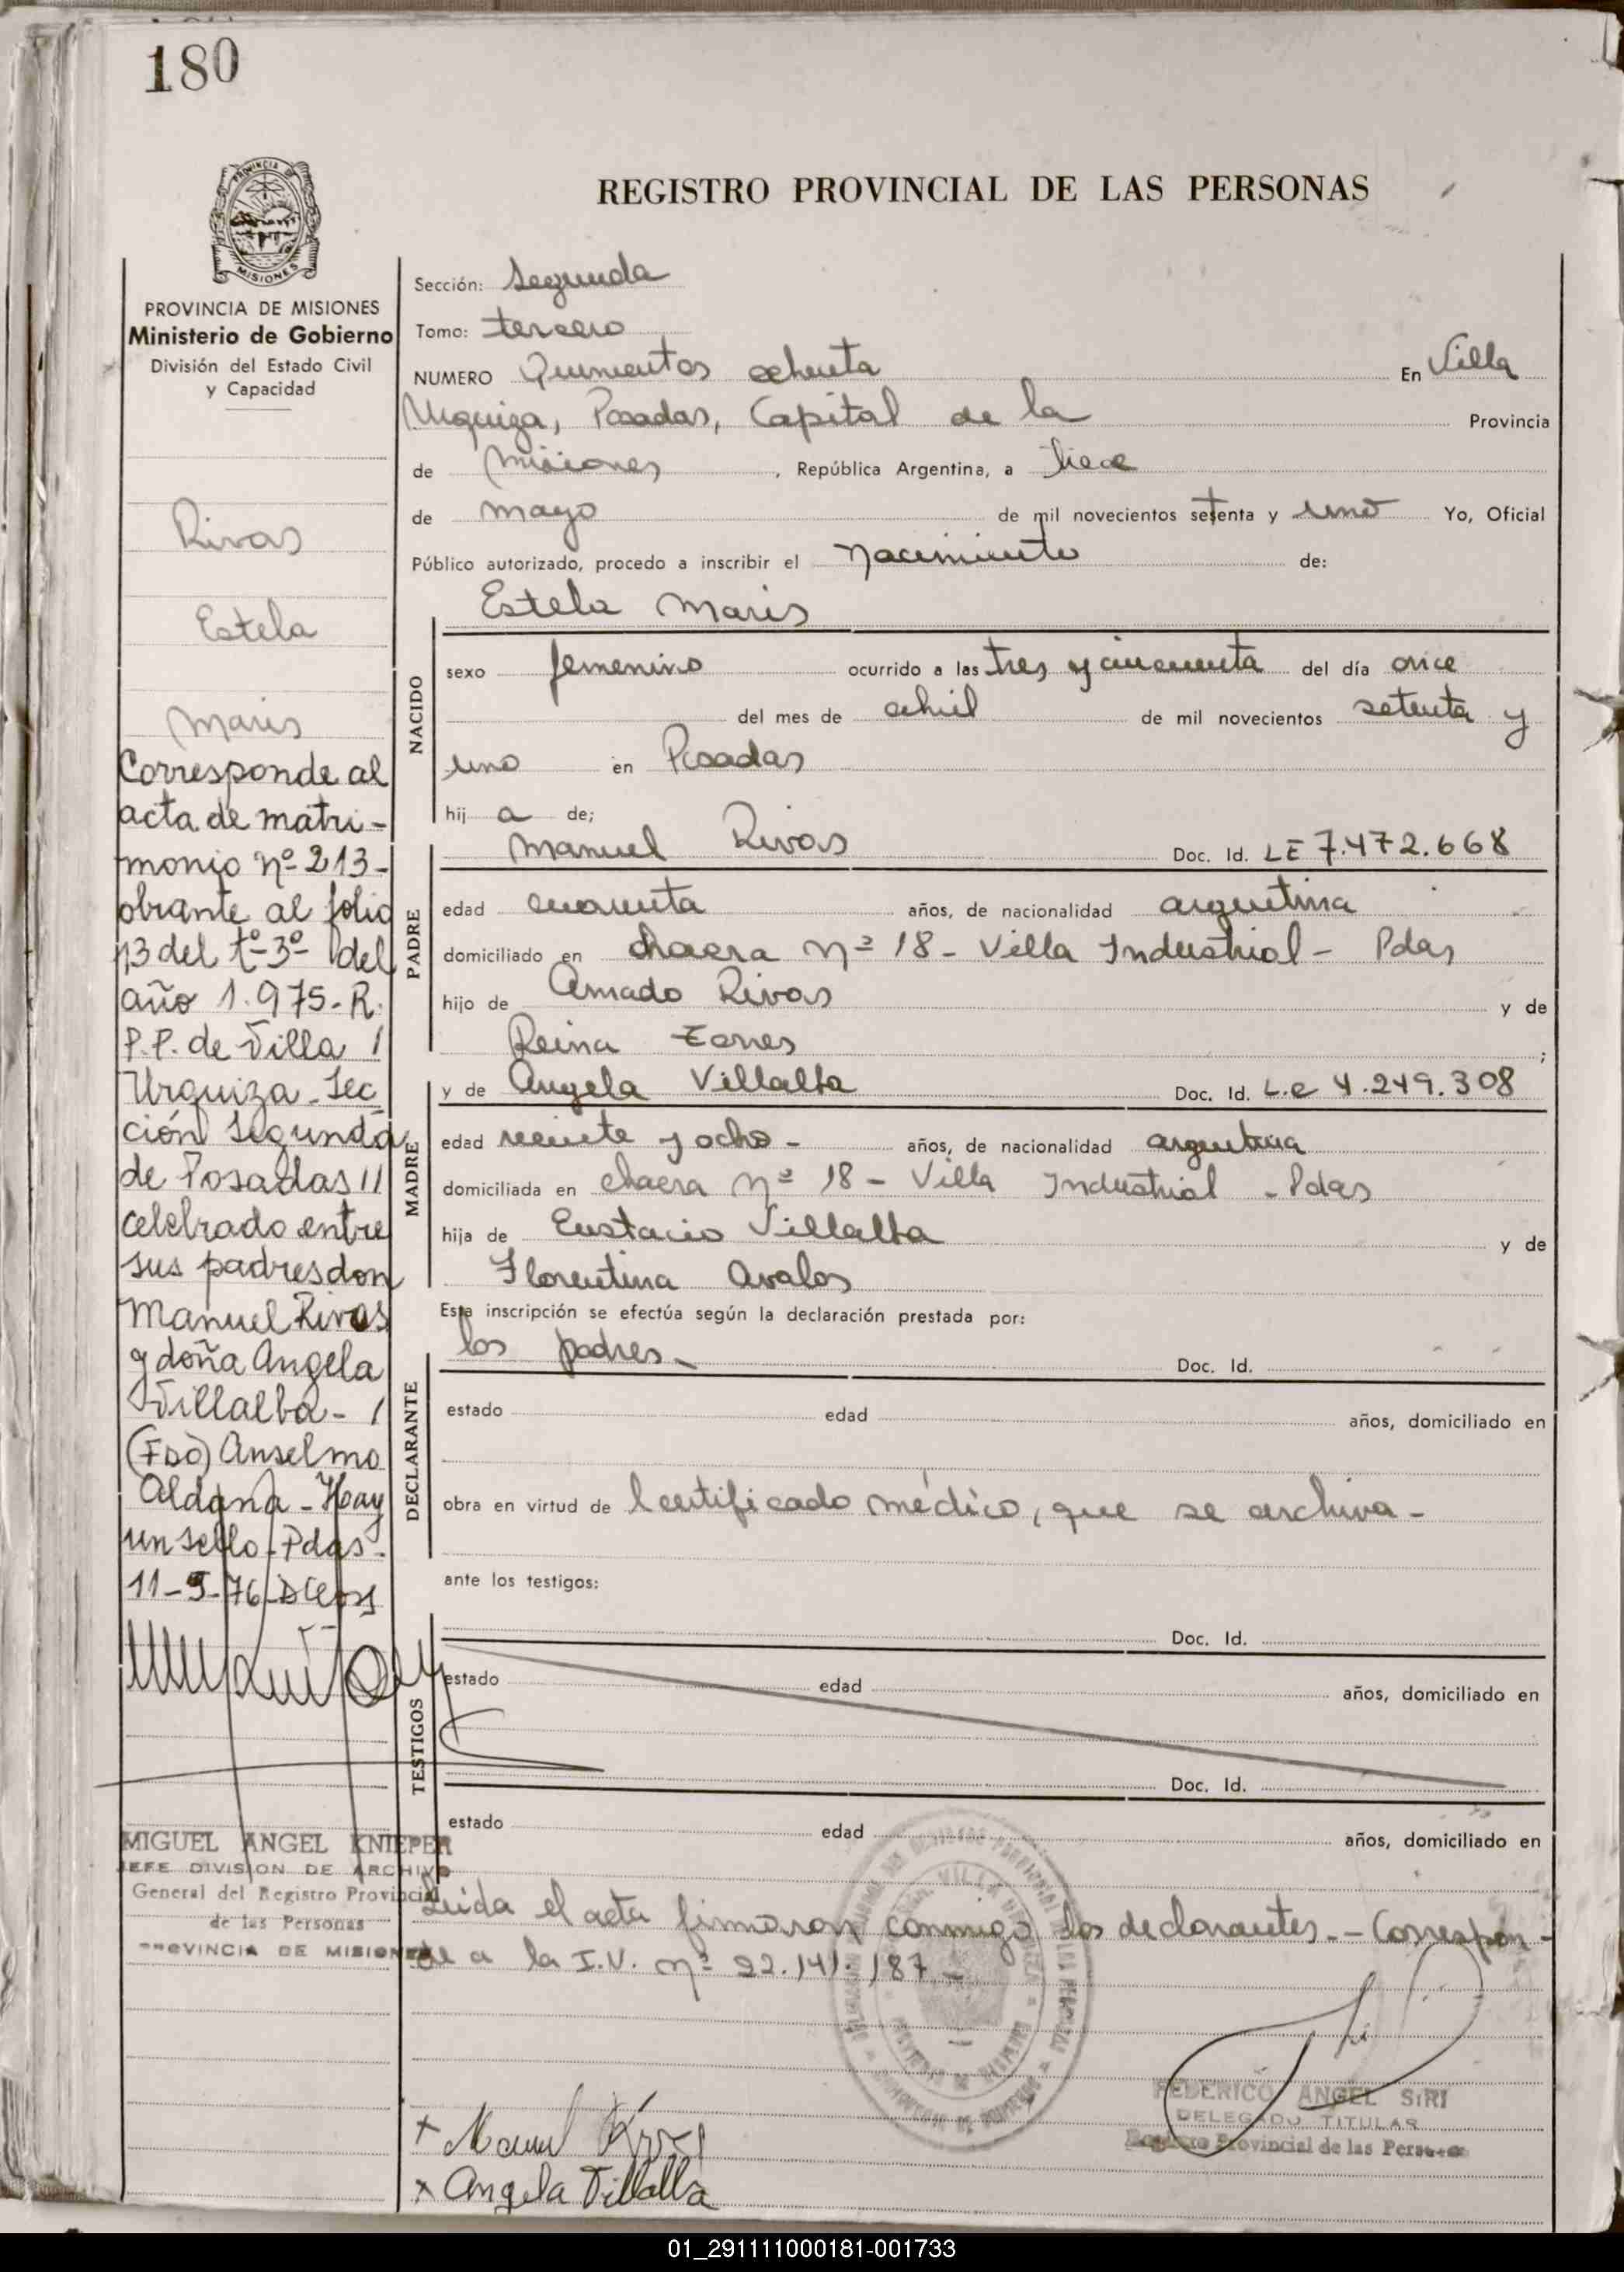 180
REGISTRO PROVINCIAL DE LAS PERSONAS
PROVINCIA DE
MISIONES
PROVINCIA DE MISIONES
Ministerio de Gobierno
División del Estado Civil
y Capacidad
Rivas
Estela
Maris
Corresponde al
acta de matri-
monio nº 213-
obrante al folio
13 del tº 3º del
año 1.975- R.
P.P. de Villa /
Urquiza - Sec
ción Segunda
de Posadas //
celebrado entre
sus padres don
Manuel Rivas
y doña Angela
Villalba - /
(Fdo) Anselmo
Aldana - Hay
un sello - Pdas -
11-5-76
MIGUEL ANGEL KNIEPER
JEFE DIVISION DE ARCHIVO
General del Registro Provincial
de las Personas
PROVINCIA DE MISIONES
Sección: Segunda
Tomo: tercero
NUMERO Quinientos ochenta En Villa
Urquiza, Posadas, Capital de la Provincia
de Misiones, República Argentina, a trece
de mayo de mil novecientos setenta y uno Yo, Oficial
Público autorizado, procedo a inscribir el Nacimiento de:
Estela Maris
NACIDO
sexo femenino ocurrido a las tres y cincuenta del día once
del mes de abril de mil novecientos setenta y
uno en Posadas
hij a de;
Manuel Rivas Doc. Id. LE 7.472.668
PADRE
edad cuarenta años, de nacionalidad argentina
domiciliado en chacra nº 18 - Villa Industrial - Pdas
hijo de Amado Rivas y de
Reina Torres ;
y de Angela Villalba Doc. Id. L.C 4.249.308
MADRE
edad veinte y ocho - años, de nacionalidad argentina
domiciliada en chacra nº 18 - Villa Industrial - Pdas
hija de Eustacio Villalba y de
Florentina Avalos
Esta inscripción se efectúa según la declaración prestada por:
los padres - Doc. Id.
DECLARANTE
estado edad años, domiciliado en
obra en virtud de Certificado médico, que se archiva -
ante los testigos:
Doc. Id.
TESTIGOS
estado edad años, domiciliado en
Doc. Id.
estado edad años, domiciliado en
Leída el acta firmaron conmigo los declarantes. - Correspon-
de a la I.V. nº 22.141.187 -
FEDERICO ANGEL SIRI
DELEGADO TITULAR
Registro Provincial de las Personas
x Manuel Rivas
x Angela Villalba
01_291111000181-001733